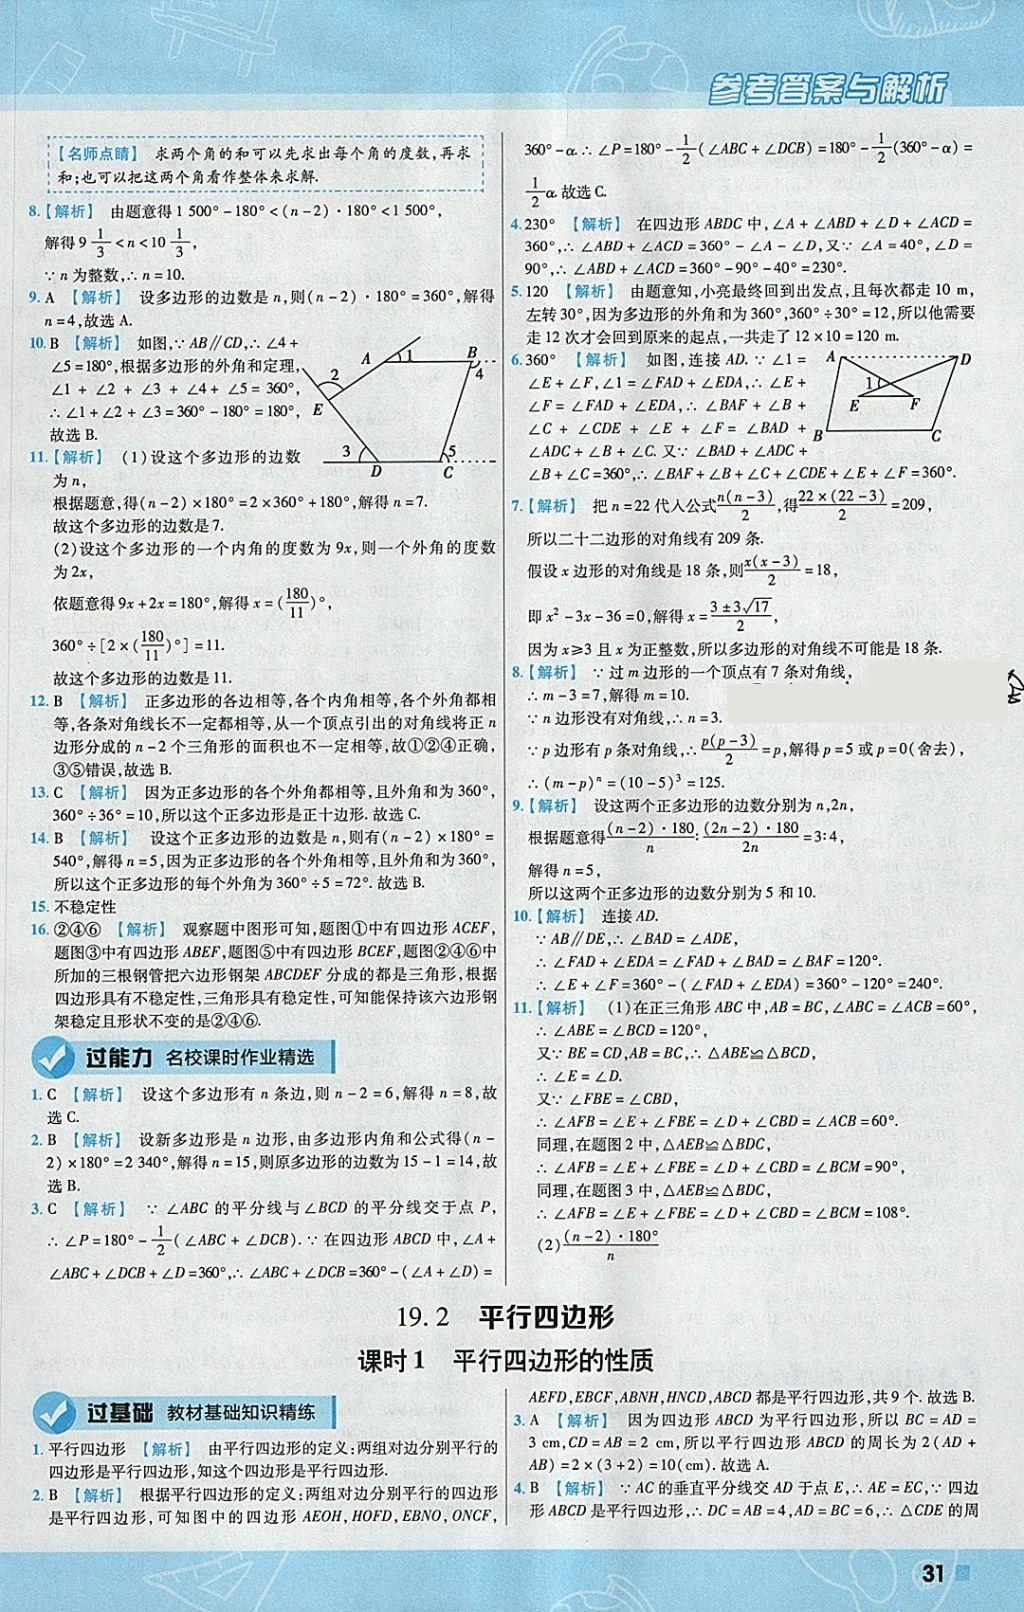 参考答案与解析
【名师点睛】 求两个角的和可以先求出每个角的度数,再求
和;也可以把这两个角看作整体来求解.
8.【解析】 由题意得1 500°-180°<(n-2)·180°<1 500°,
解得9 1/3<n<10 1/3,
∵n为整数,∴n=10.
9. A 【解析】 设多边形的边数是n,则(n-2)·180°=360°,解得
n=4,故选A.
10. B 【解析】 如图,∵AB∥CD,∴∠4+
∠5=180°,根据多边形的外角和定理,
∠1+∠2+∠3+∠4+∠5=360°,
∴∠1+∠2+∠3=360°-180°=180°,
故选B.
A 1 B 4 2 E 3 D 5 C
11.【解析】 (1)设这个多边形的边数
为n,
根据题意,得(n-2)×180°=2×360°+180°,解得n=7.
故这个多边形的边数是7.
(2)设这个多边形的一个内角的度数为9x,则一个外角的度数
为2x,
依题意得9x+2x=180°,解得x=(180/11)°,
360°÷[2×(180/11)°]=11.
故这个多边形的边数是11.
12. B 【解析】 正多边形的各边相等,各个内角相等,各个外角都相
等,各条对角线长不一定都相等,从一个顶点引出的对角线将正n
边形分成的n-2个三角形的面积也不一定相等,故①②④正确,
③⑤错误,故选B.
13. C 【解析】 因为正多边形的各个外角都相等,且外角和为360°,
360°÷36°=10,所以这个正多边形是正十边形.故选C.
14. B 【解析】 设这个正多边形的边数是n,则有(n-2)×180°=
540°,解得n=5,因为正多边形的各个外角都相等,且外角和为360°,
所以这个正多边形的每个外角为360°÷5=72°.故选B.
15. 不稳定性
16. ②④⑥ 【解析】 观察题中图形可知,题图①中有四边形ACEF,
题图③中有四边形ABEF,题图⑤中有四边形BCEF,题图②④⑥中
所加的三根钢管把六边形钢架ABCDEF分成的都是三角形,根据
四边形具有不稳定性,三角形具有稳定性,可知能保持该六边形钢
架稳定且形状不变的是②④⑥.
过能力 名校课时作业精选
1. C 【解析】 设这个多边形有n条边,则n-2=6,解得n=8,故
选C.
2. B 【解析】 设新多边形是n边形,由多边形内角和公式得(n-
2)×180°=2 340°,解得n=15,则原多边形的边数为15-1=14,故
选B.
3. C 【解析】 ∵∠ABC的平分线与∠BCD的平分线交于点P,
∴∠P=180°-1/2(∠ABC+∠DCB).∵在四边形ABCD中,∠A+
∠ABC+∠DCB+∠D=360°,∴∠ABC+∠DCB=360°-(∠A+∠D)=
360°-α.∴∠P=180°-1/2(∠ABC+∠DCB)=180°-1/2(360°-α)=
1/2α.故选C.
4. 230° 【解析】 在四边形ABDC中,∠A+∠ABD+∠D+∠ACD=
360°,∴∠ABD+∠ACD=360°-∠A-∠D,又∵∠A=40°,∠D=
90°,∴∠ABD+∠ACD=360°-90°-40°=230°.
5. 120 【解析】 由题意知,小亮最终回到出发点,且每次都走10 m,
左转30°,因为多边形的外角和为360°,360°÷30°=12,所以他需要
走12次才会回到原来的起点,一共走了12×10=120 m.
6. 360° 【解析】 如图,连接AD.∵∠1=
∠E+∠F,∠1=∠FAD+∠EDA,∴∠E+
∠F=∠FAD+∠EDA,∴∠BAF+∠B+
∠C+∠CDE+∠E+∠F=∠BAD+
∠ADC+∠B+∠C.又∵∠BAD+∠ADC+
∠B+∠C=360°,∴∠BAF+∠B+∠C+∠CDE+∠E+∠F=360°.
A D 1 E F B C
7.【解析】 把n=22代人公式n(n-3)/2,得22×(22-3)/2=209,
所以二十二边形的对角线有209条.
假设x边形的对角线是18条,则x(x-3)/2=18,
即x²-3x-36=0,解得x=(3±3√17)/2,
因为x≥3且x为正整数,所以多边形的对角线不可能是18条.
8.【解析】 ∵过m边形的一个顶点有7条对角线,
∴m-3=7,解得m=10.
∵n边形没有对角线,∴n=3.
∵p边形有p条对角线,∴p(p-3)/2=p,解得p=5或p=0(舍去),
∴(m-p)ⁿ=(10-5)³=125.
9.【解析】 设这两个正多边形的边数分别为n,2n,
根据题意得(n-2)·180/n:(2n-2)·180/2n=3:4,
解得n=5,
所以这两个正多边形的边数分别为5和10.
10.【解析】 连接AD.
∵AB∥DE,∴∠BAD=∠ADE,
∴∠FAD+∠EDA=∠FAD+∠BAD=∠BAF=120°.
∴∠E+∠F=360°-(∠FAD+∠EDA)=360°-120°=240°.
11.【解析】 (1)在正三角形ABC中,AB=BC,∠ABC=∠ACB=60°,
∴∠ABE=∠BCD=120°,
又∵BE=CD,AB=BC,∴△ABE≌△BCD,
∴∠E=∠D.
又∵∠FBE=∠CBD,
∴∠AFB=∠E+∠FBE=∠D+∠CBD=∠ACB=60°.
同理,在题图2中,△AEB≌△BDC,
∴∠AFB=∠E+∠FBE=∠D+∠CBD=∠BCM=90°,
同理,在题图3中,△AEB≌△BDC,
∴∠AFB=∠E+∠FBE=∠D+∠CBD=∠BCM=108°.
(2)(n-2)·180°/n
19.2 平行四边形
课时1 平行四边形的性质
过基础 教材基础知识精练
1. 平行四边形 【解析】 由平行四边形的定义:两组对边分别平行的
四边形是平行四边形,知这个四边形是平行四边形.
2. B 【解析】 根据平行四边形的定义:两组对边分别平行的四边形
是平行四边形,可知图中的四边形AEOH,HOFD,EBNO,ONCF,
AEFD,EBCF,ABNH,HNCD,ABCD都是平行四边形,共9个.故选B.
3. A 【解析】 因为四边形ABCD为平行四边形,所以BC=AD=
3 cm,CD=AB=2 cm,所以平行四边形ABCD的周长为2(AD+
AB)=2×(3+2)=10(cm).故选A.
4. B 【解析】 ∵AC的垂直平分线交AD于点E,∴AE=EC,∵四边
形ABCD是平行四边形,∴DC=AB=4,AD=BC=6,∴△CDE的周
31